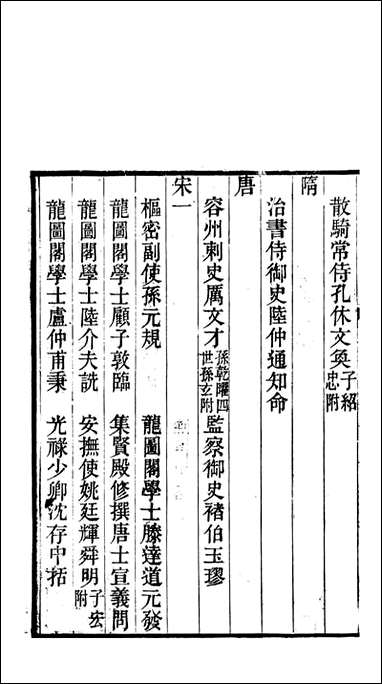 散騎常侍孔休文奐子紹忠附
隋
治書侍御史陸仲通知命
唐
容州刺史厲文才孫乾曜四世孫玄附　監察御史褚伯玉璆
宋一
樞密副使孫元規　龍圖閣學士滕達道元發
龍圖閣學士顧子敦臨　集賢殿修撰唐士宣義問
龍圖閣學士陸介夫詵　安撫使姚廷輝舜明子宏附
龍圖閣學士盧仲甫秉　光祿少卿沈存中括